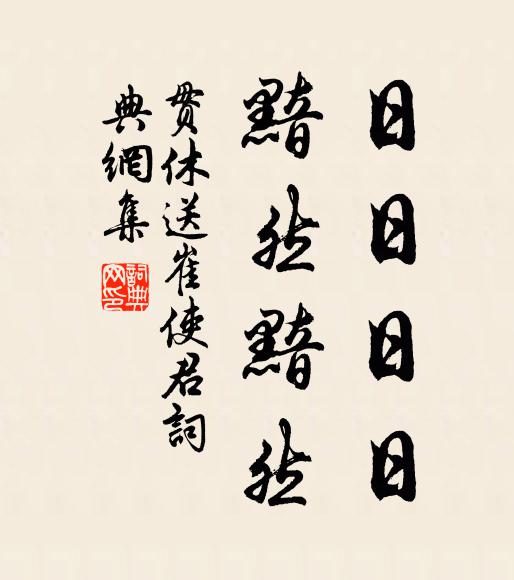 日日日日
黯然黯然
贯休送崔使君詞
典網集
詞典网印